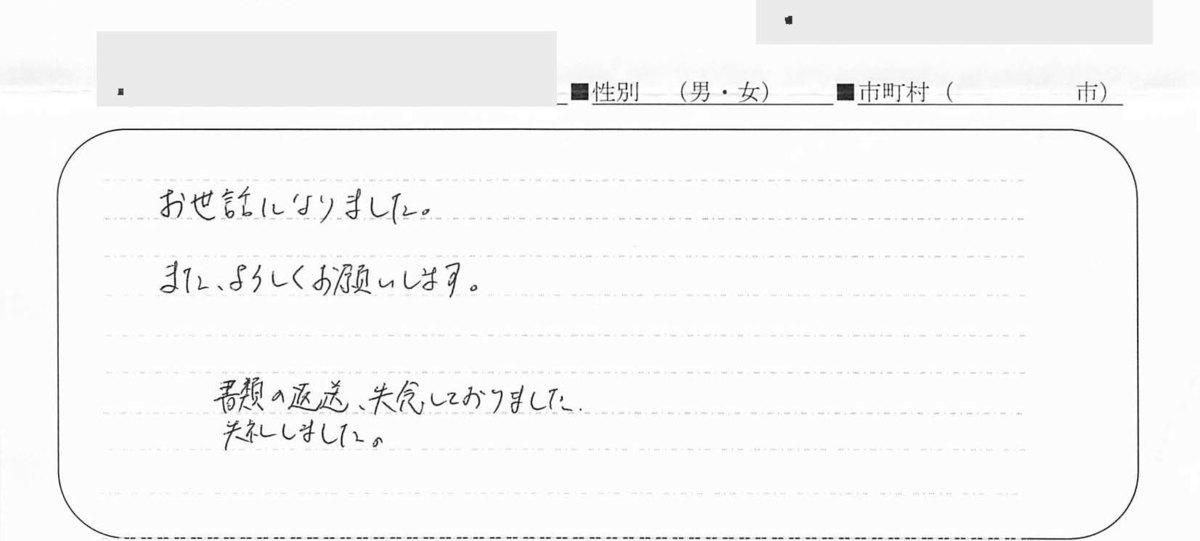 ■性別 （男・女） ■市町村（ 市）
お世話になりました。
また、よろしくお願いします。
書類の返送、失念しておりました.
失礼しました。